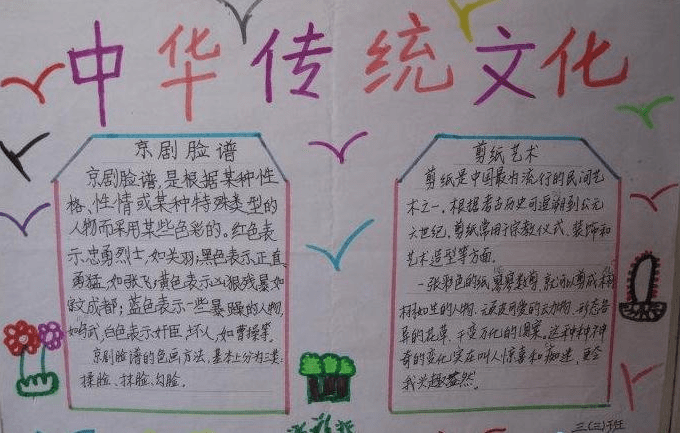 中华传统文化
京剧脸谱
京剧脸谱,是根据某种性
格、性情或某种特殊类型的
人物而采用某些色彩的。红色表
示忠勇烈士,如关羽;黑色表示正直、
勇猛,如张飞;黄色表示凶狠残暴如
宇文成都;蓝色表示一些暴躁的人物,
如马武,白色表示奸臣、坏人,如曹操等。
京剧脸谱的色画方法,基本上分为三类:
揉脸、抹脸、勾脸。
剪纸艺术
剪纸是中国最为流行的民间艺
术之一,根据考古历史可追溯到公元
六世纪,剪纸常用于宗教仪式、装饰和
艺术造型等方面。
一张彩色的纸,寥寥数剪,就可以剪成栩
栩如生的人物、活皮可爱的动物、形态各
异的花草、千变万化的图案。这种神
奇的变化实在叫人惊喜和痴迷,更令
我兴趣盎然。
三(三)班